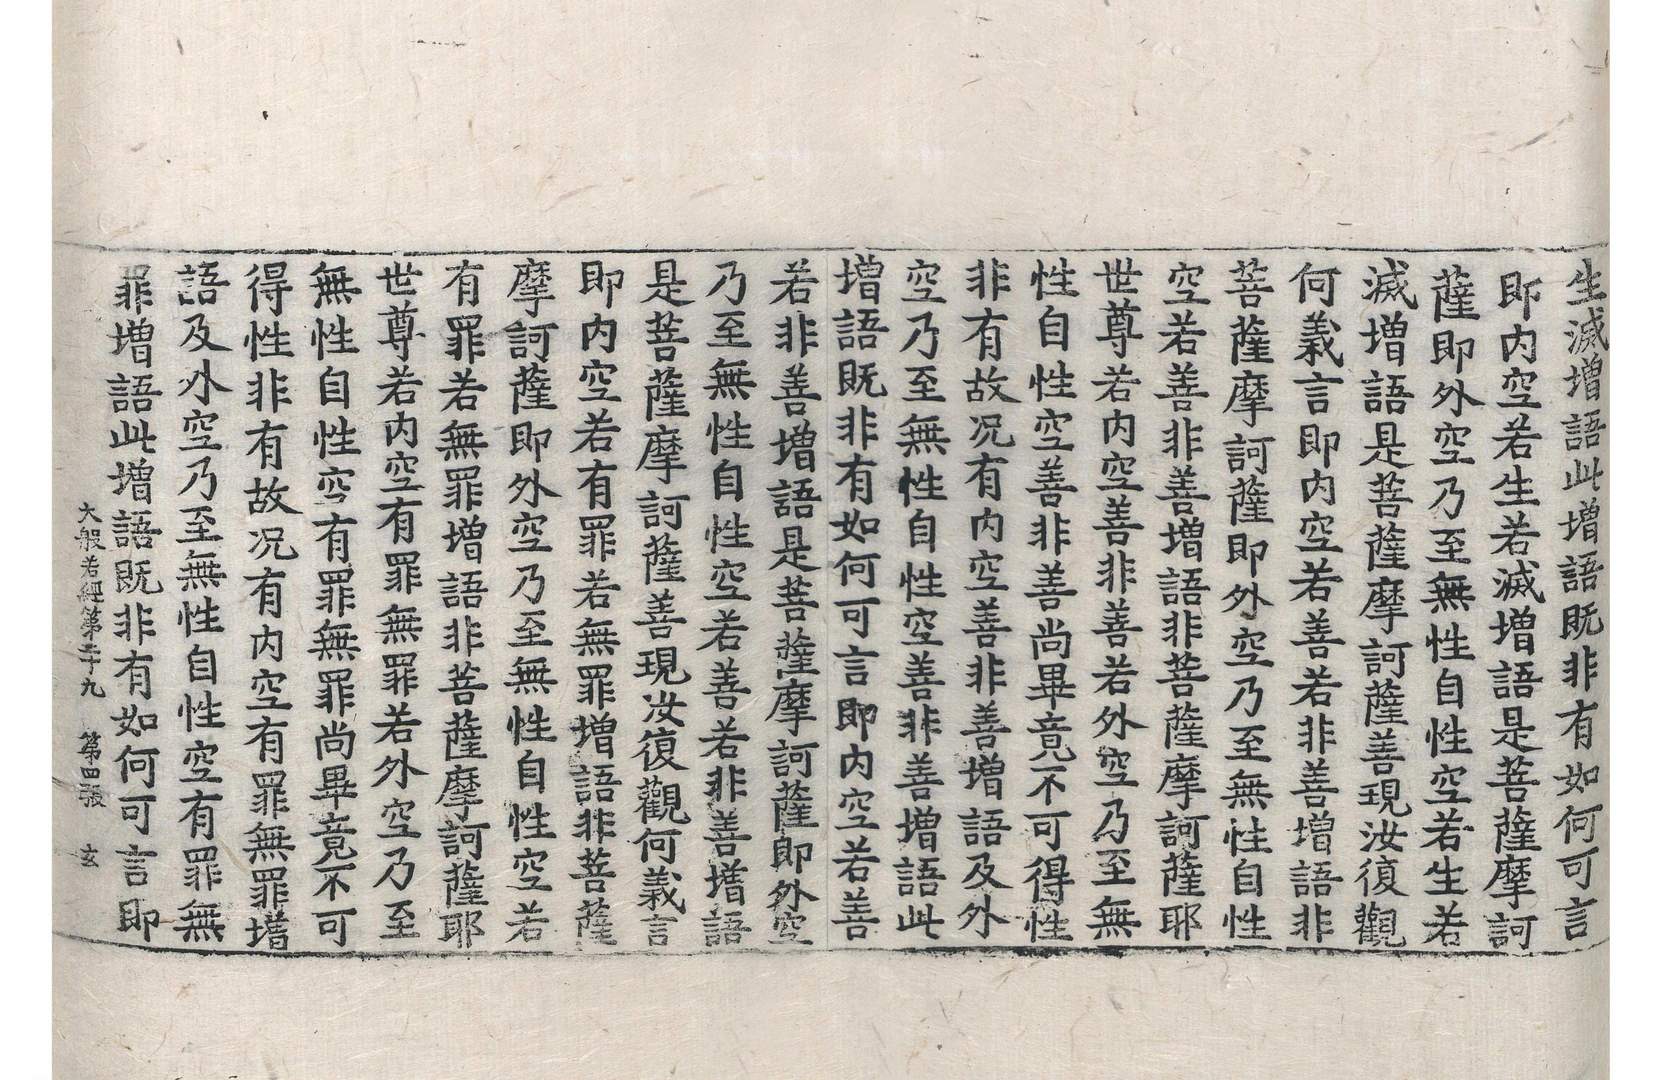 生滅增語此增語既非有如何可言
即内空若生若滅增語是菩薩摩訶
薩即外空乃至無性自性空若生若
滅增語是菩薩摩訶薩善現汝復觀
何義言即内空若善若非善增語非
菩薩摩訶薩即外空乃至無性自性
空若善非善增語非菩薩摩訶薩耶
世尊若内空善非善若外空乃至無
性自性空善非善尚畢竟不可得性
非有故况有内空善非善增語及外
空乃至無性自性空善非善增語此
增語既非有如何可言即内空若善
若非善增語是菩薩摩訶薩即外空
乃至無性自性空若善若非善增語
是菩薩摩訶薩善現汝復觀何義言
即内空若有罪若無罪增語非菩薩
摩訶薩即外空乃至無性自性空若
有罪若無罪增語非菩薩摩訶薩耶
世尊若内空有罪無罪若外空乃至
無性自性空有罪無罪尚畢竟不可
得性非有故况有内空有罪無罪增
語及外空乃至無性自性空有罪無
罪增語此增語既非有如何可言即
大般若經第二十九 第四張 玄